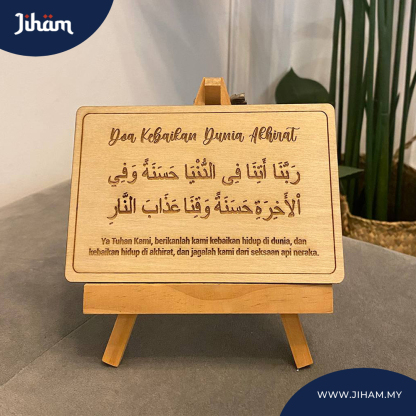 Jihäm
Doa Kebaikan Dunia Akhirat
رَبَّنَا أَتِنَا فِى الدُّنْيَا حَسَنَةً وَفِي
ألأَخِرَةِ حَسَنَةً وَقِنَا عَذَابَ النَّارِ
Ya Tuhan Kami, berikanlah kami kebaikan hidup di dunia, dan
kebaikan hidup di akhirat, dan jagalah kami dari seksaan api neraka.
WWW.JIHAM.MY